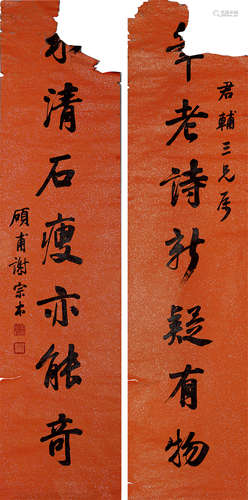 君輔三兄屬
年老詩新疑有物
水清石瘦亦能奇
碩甫謝宗本